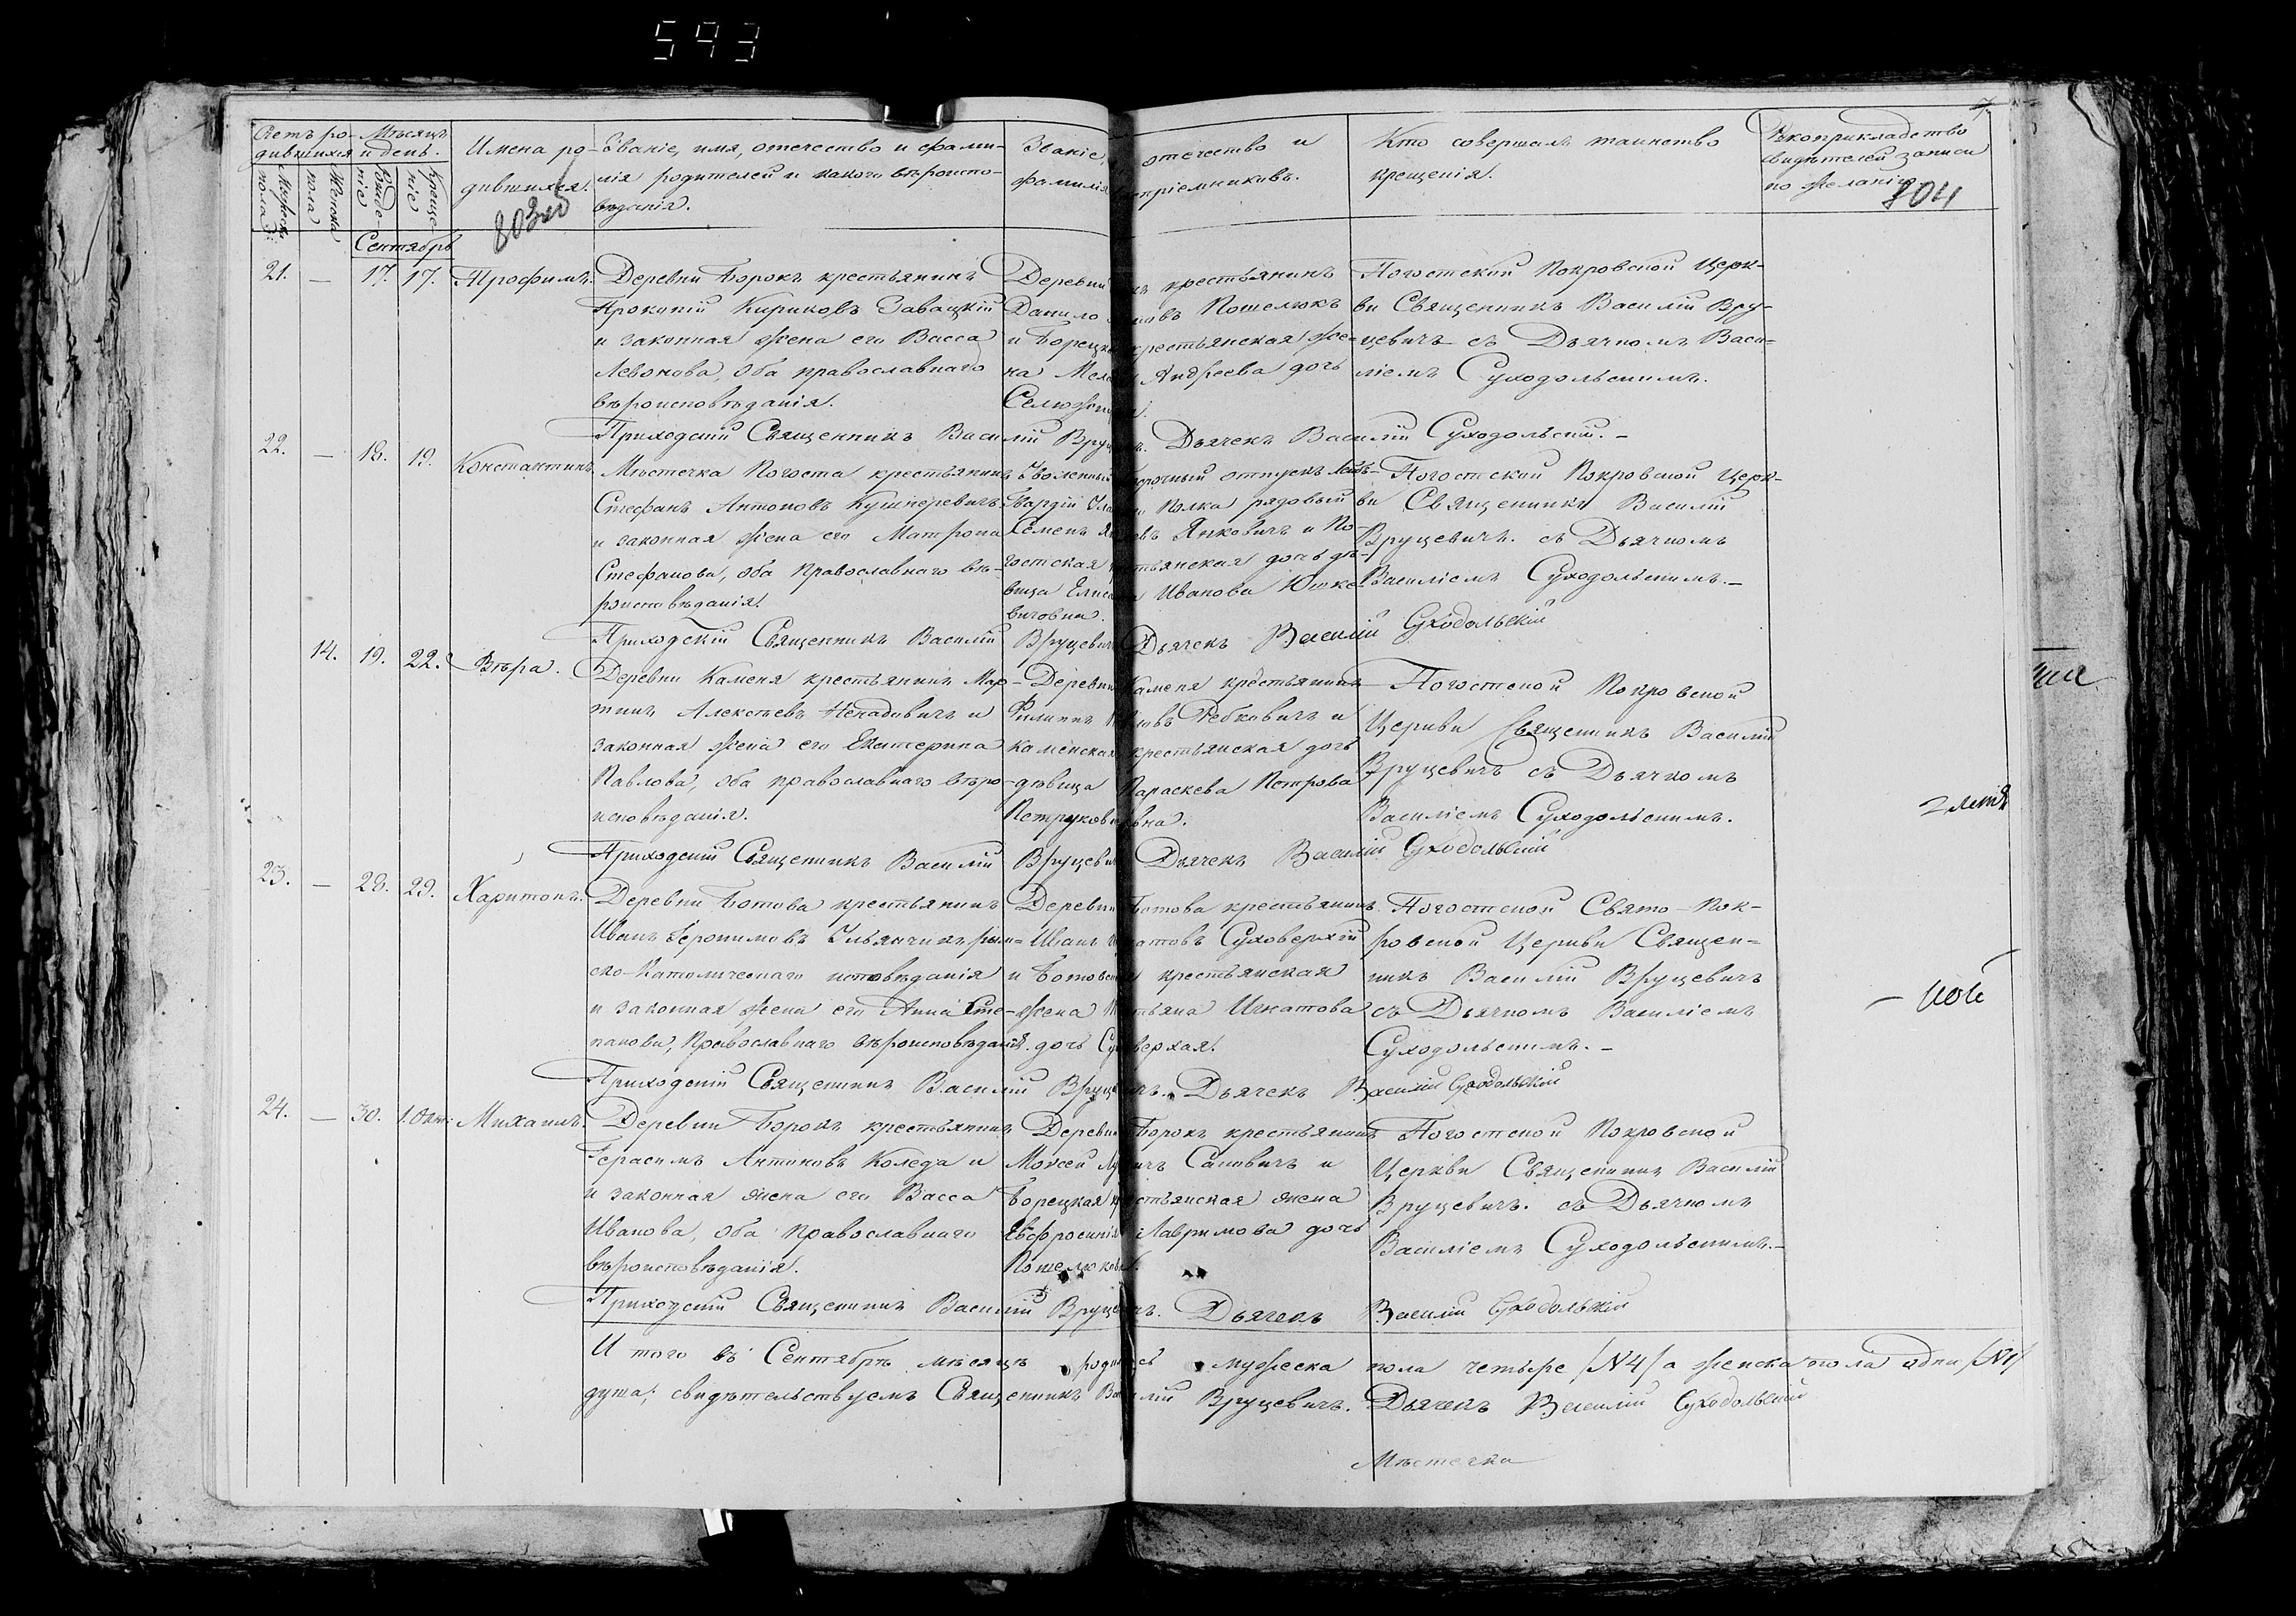 593
Счетъ ро- Мѣсяцъ
дившихся и день.
Мужеска пола
Женска пола
Рожденіе
Крещеніе
Имена ро-
дившихся.
803об
Званіе, имя, отечество и фами-
лія родителей и какого вѣроиспо-
вѣданія.
Званіе, отечество и
фамилія воспріемниковъ.
Кто совершалъ таинство
крещенія.
Рукоприкладство
свидетелей записи
по желанію
804
Сентябрь
21. — 17. 17. Трофимъ.
Деревни Борокъ крестьянинъ
Прокопій Кириковъ Завацкій
и законная жена его Васса
Левонова, оба православнаго
вѣроисповѣданія.
Деревни крестьянинъ
Данило Пошелюкъ
и Борецкая крестьянская же-
на Андреева дочь
Погостской Покровской Церк-
ви Священникъ Василій Вру-
цевичъ съ Дьячкомъ Васи-
ліемъ Суходольскимъ.
Приходскій Священникъ Василій Дьячекъ Василій Суходольскій. –
22. — 18. 19. Константинъ.
Мѣстечка Погоста крестьянинъ
Стефанъ Антоновъ Кушнеревичъ
и законная жена его Матрона
Стефанова, оба Православнаго вѣ-
роисповѣданія.
Уволенный отпускъ Лейбъ-
Гвардіи Полка рядовый
Семенъ Янковичъ и По-
гостская дочь дѣ-
вица Иванова Юшке-
вичовна.
Погостской Покровской Церк-
ви Священникъ Василій
Вруцевичъ. съ Дьячкомъ
Василіемъ Суходольскимъ. –
Приходскій Священникъ Василій Вруцевичъ Дьячекъ Василій Суходольскій
14. 19. 22. Вѣра.
Деревни Каменя крестьянинъ Мар-
тинъ Алексѣевъ Ненадовичъ и
законная жена его Екатерина
Павлова, оба православнаго вѣро-
исповѣданія.
Деревни Каменя крестьянинъ
Филиппъ Рябковичъ и
Каменская крестьянская дочь
дѣвица Параскева Петрова
Петруковичовна.
Погостской Покровской
Церкви Священникъ Василій
Вруцевичъ съ Дьячкомъ
Василіемъ Суходольскимъ.
Приходскій Священникъ Василій Вруцевичъ Дьячекъ Василій Суходольскій
23. — 28. 29. Харитонъ.
Деревни Ботова крестьянинъ
Иванъ Іеронимовъ Ульянчикъ рим-
ско-Католическаго исповѣданія
и законная жена его Анна Сте-
панова, Православнаго вѣроисповѣданія.
Деревни Ботова крестьянинъ
Иванъ Игнатовъ Суховерхій
и Ботовская крестьянская
жена Игнатова
дочь Суховерхая.
Погостской Свято-Пок-
ровской Церкви Священ-
никъ Василій Вруцевичъ
съ Дьячкомъ Василіемъ
Суходольскимъ. –
Приходскій Священникъ Василій Вруцевичъ. Дьячекъ Василій Суходольскій
24. — 30. 1. Окт: Михаилъ.
Деревни Борокъ крестьянинъ
Герасимъ Антоновъ Коледа и
и законная жена его Васса
Иванова, оба православнаго
вѣроисповѣданія.
Деревни Борокъ крестьянинъ
Моисей Сановичъ и
Борецкая крестьянская жена
Евфросинія Лавримова дочь
Пошелюкова.
Погостской Покровской
Церкви Священникъ Василій
Вруцевичъ. съ Дьячкомъ
Василіемъ Суходольскимъ. –
Приходскій Священникъ Василій Вруцевичъ. Дьячекъ Василій Суходольскій
И того въ Сентябрѣ мѣсяцѣ родилось мужеска пола четыре /№4/ а женска пола одна /№1/
душа; свидѣтельствуемъ Священникъ Василій Вруцевичъ. Дьячекъ Василій Суходольскій
Мѣстечка